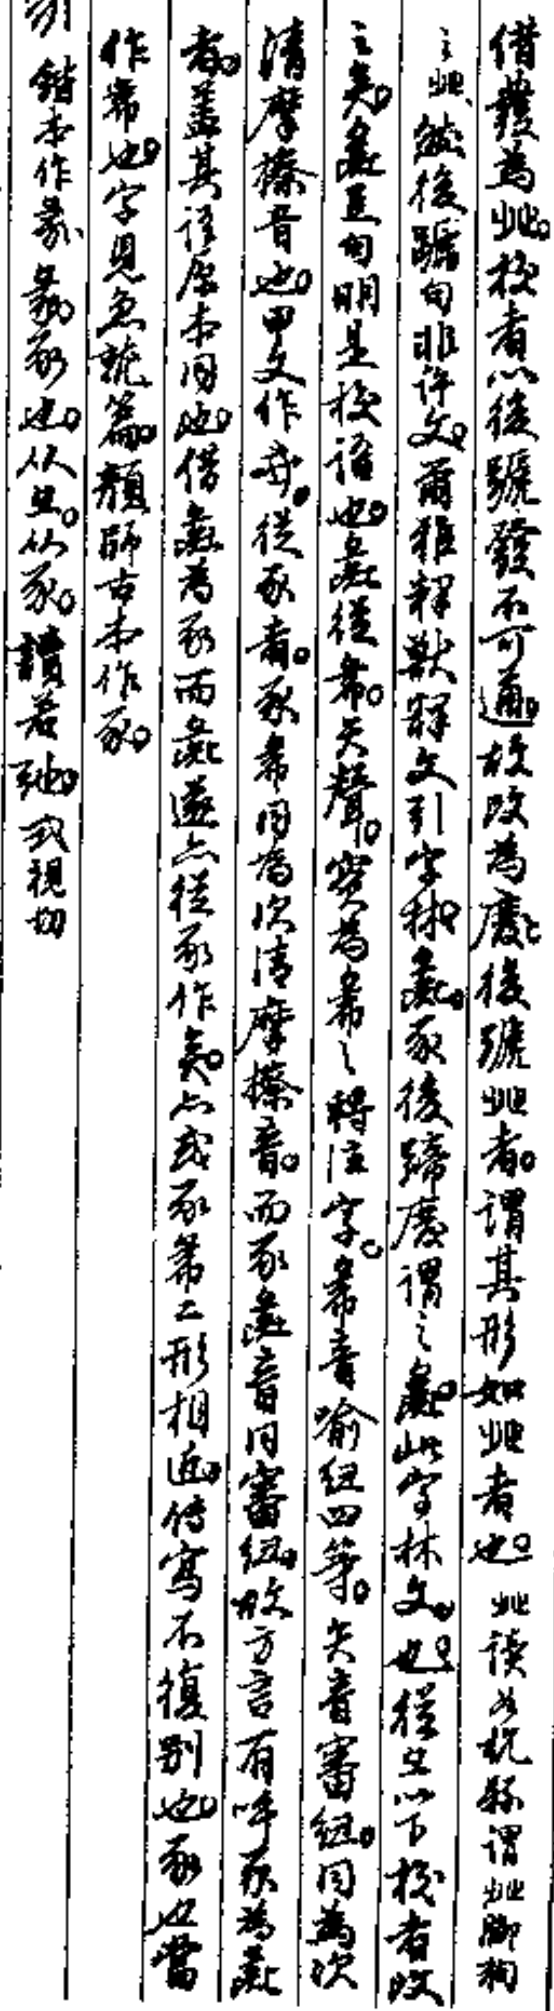 借𧰲為跐。校者以後號發不可通。故改為廢。後號跐者。謂其形如跐者也。跐讀如 謂跐腳
之跐、彘後蹏句非許文。爾雅釋獸釋文引字林。彘。豕後蹄廢謂之彘。此字林文。也。從彑以下校者改
之矣。彘 句明是校語也。彘從㣇。矢聲。實為㣇之轉注字。㣇音喻紐四等。矢音審紐。同為次
清摩擦音也。甲文作 。從豕者。豕㣇同為次清摩擦音。而豕彘音同審紐。故方言有呼豕為彘
者。蓋其語原本同也。借彘為豕而彘遂亦從豕作矣。亦或豕㣇二形相近。傳寫不復別也。豕也當
作㣇也。字見急就篇。顏師古本作豕。
鍇本作彖 豕也。从彑。从豕。讀若弛。式視切